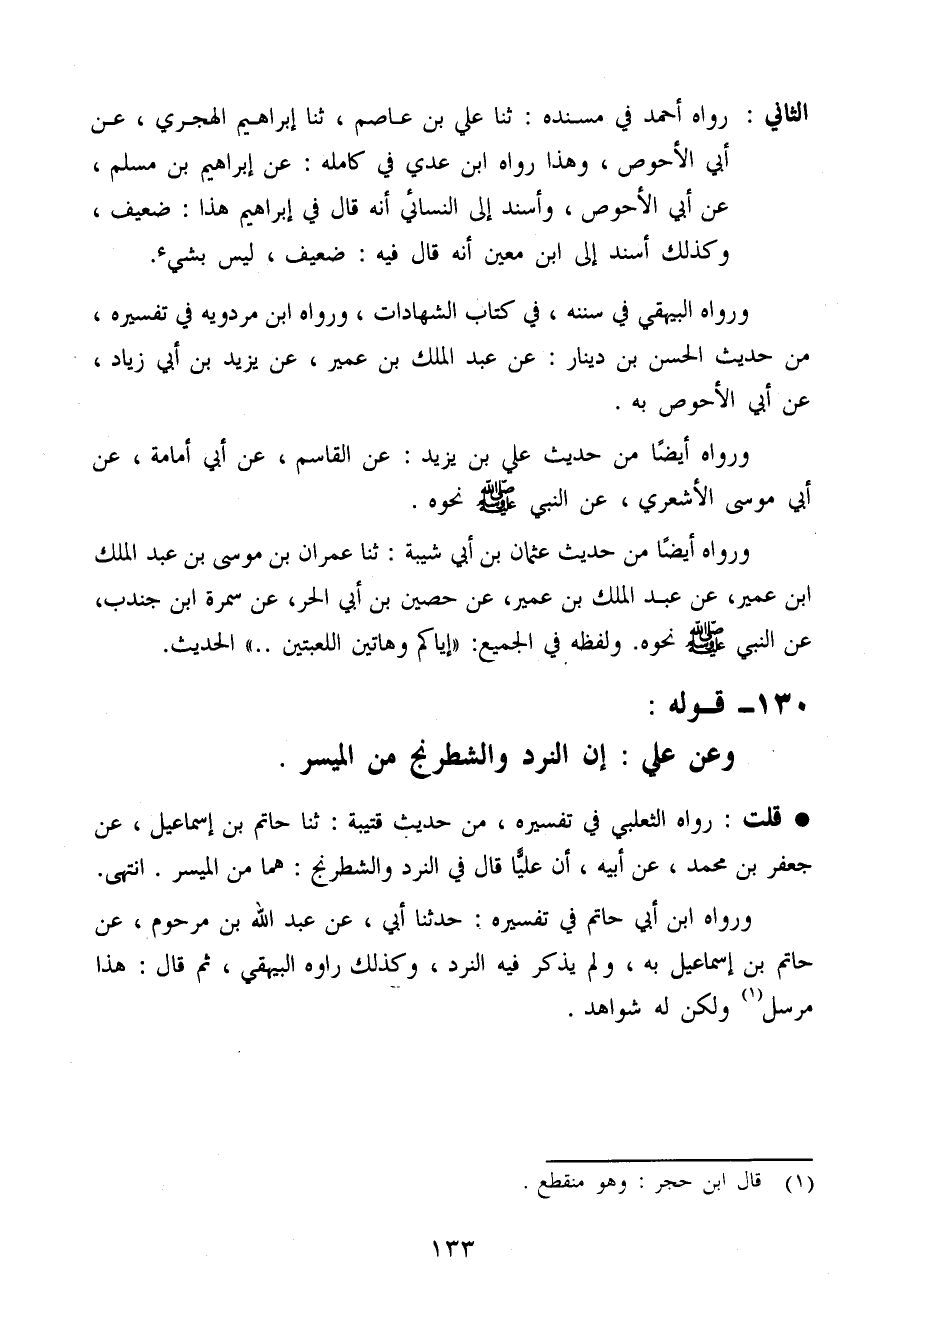 الثاني : رواه أحمد في مسنده : ثنا علي بن عاصم ، ثنا إبراهيم الهجري ، عن
أبي الأحوص ، وهذا رواه ابن عدي في كامله : عن إبراهيم بن مسلم ،
عن أبي الأحوص ، وأسند إلى النسائي أنه قال في إبراهيم هذا : ضعيف ،
وكذلك أسند إلى ابن معين أنه قال فيه : ضعيف ، ليس بشيء.
ورواه البيهقي في سننه ، في كتاب الشهادات ، ورواه ابن مردويه في تفسيره ،
من حديث الحسن بن دينار : عن عبد الملك بن عمير ، عن يزيد بن أبي زياد ،
عن أبي الأحوص به .
ورواه أيضًا من حديث علي بن يزيد : عن القاسم ، عن أبي أمامة ، عن
أبي موسى الأشعري ، عن النبي ﷺ نحوه .
ورواه أيضًا من حديث عثمان بن أبي شيبة : ثنا عمران بن موسى بن عبد الملك
ابن عمير، عن عبد الملك بن عمير، عن حصين بن أبي الحر، عن سمرة ابن جندب،
عن النبي ﷺ نحوه. ولفظه في الجميع: «إياكم وهاتين اللعبتين ..» الحديث.
١٣٠- قوله :
وعن علي : إن النرد والشطرنج من الميسر .
● قلت : رواه الثعلبي في تفسيره ، من حديث قتيبة : ثنا حاتم بن إسماعيل ، عن
جعفر بن محمد ، عن أبيه ، أن عليًّا قال في النرد والشطرنج : هما من الميسر . انتهى.
ورواه ابن أبي حاتم في تفسيره : حدثنا أبي ، عن عبد الله بن مرحوم ، عن
حاتم بن إسماعيل به ، ولم يذكر فيه النرد ، وكذلك راوه البيهقي ، ثم قال : هذا
مرسل(١) ولكن له شواهد .
(١) قال ابن حجر : وهو منقطع .
١٣٣